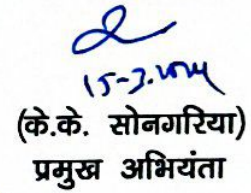 15-3.2024
(के.के. सोनगरिया)
प्रमुख अभियंता